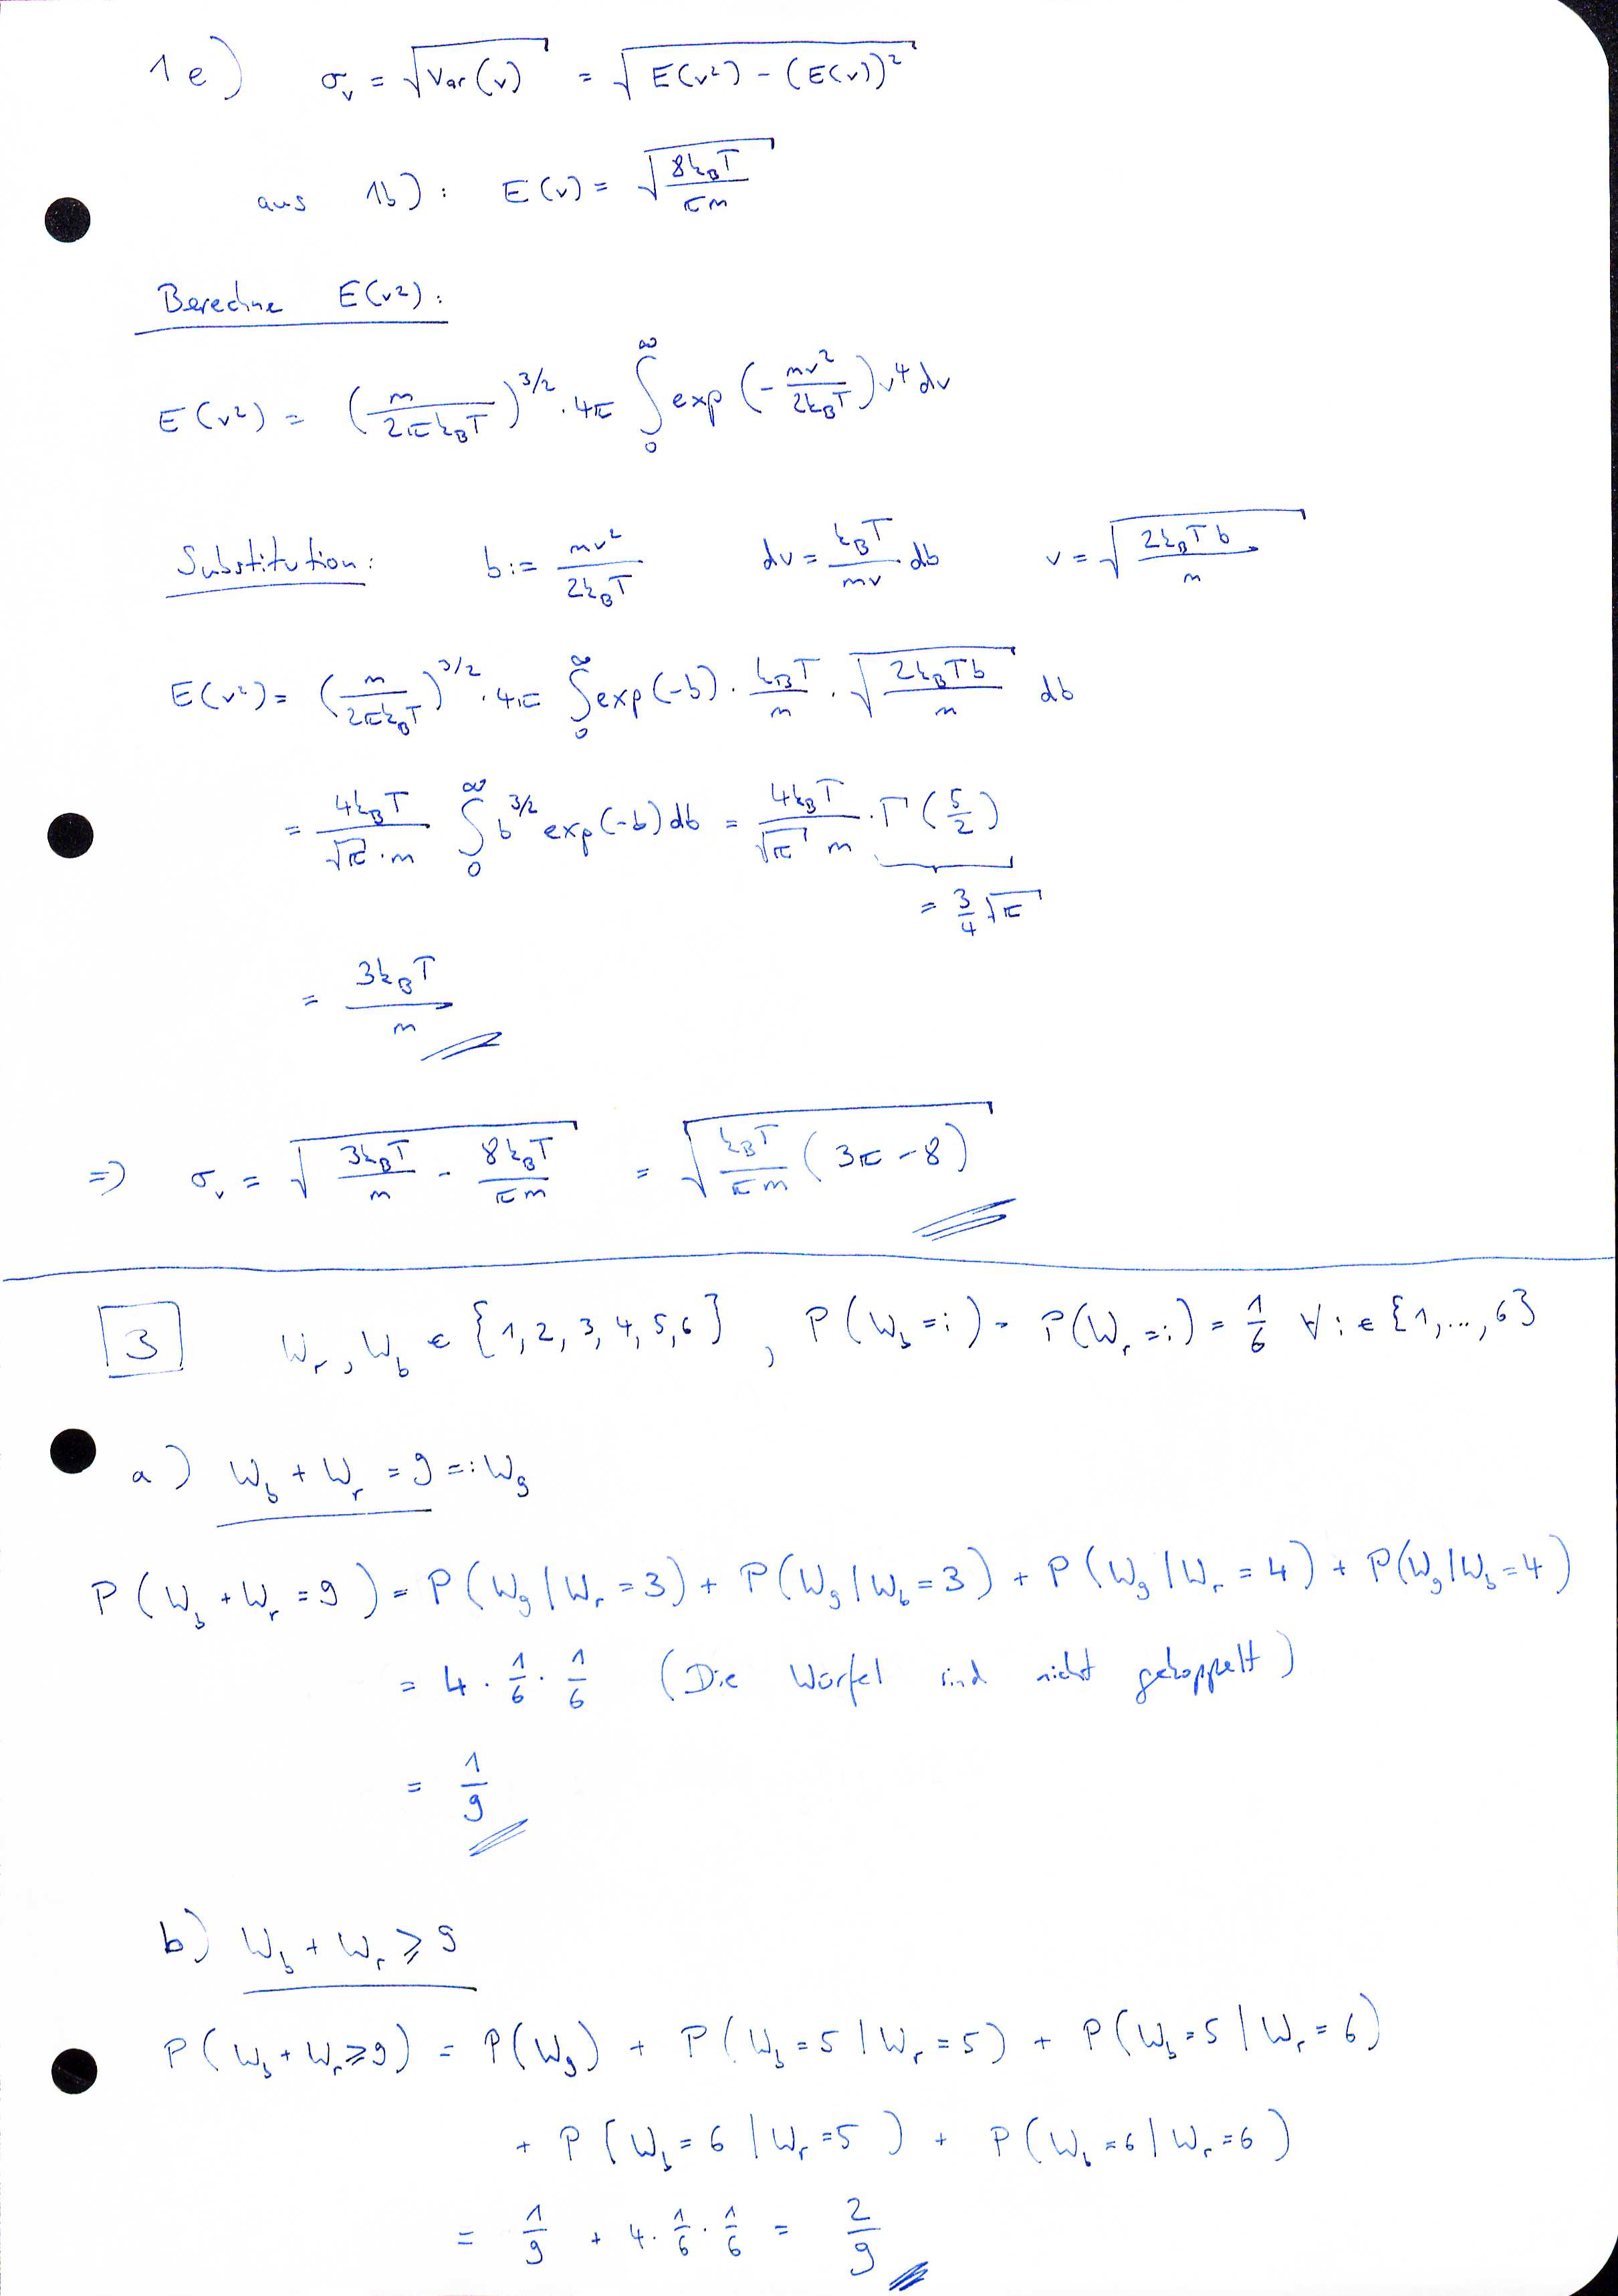 1e) σ_v = √(Var(v)) = √(E(v²) - (E(v))²)
aus 1b): E(v) = √(8k_BT / πm)
Berechne E(v²):
E(v²) = (m / 2πk_BT)^3/2 · 4π ∫_0^∞ exp(-mv² / 2k_BT) v⁴ dv
Substitution: b := mv² / 2k_BT dv = k_BT / mv · db v = √(2k_BTb / m)
E(v²) = (m / 2πk_BT)^3/2 · 4π ∫_0^∞ exp(-b) · k_BT / m · √(2k_BTb / m) db
= 4k_BT / √π · m ∫_0^∞ b^3/2 exp(-b) db = 4k_BT / √π m · Γ(5/2)
= 3/4 √π
= 3k_BT / m
=> σ_v = √(3k_BT / m - 8k_BT / πm) = √(k_BT / πm (3π - 8))
3 W_r, W_b ∈ {1, 2, 3, 4, 5, 6}, P(W_b = i) = P(W_r = i) = 1/6 ∀ i ∈ {1, ..., 6}
a) W_b + W_r = 9 =: W_9
P(W_b + W_r = 9) = P(W_9 | W_r = 3) + P(W_9 | W_b = 3) + P(W_9 | W_r = 4) + P(W_9 | W_b = 4)
= 4 · 1/6 · 1/6 (Die Würfel sind nicht gekoppelt)
= 1/9
b) W_b + W_r ⩾ 9
P(W_b + W_r ⩾ 9) = P(W_9) + P(W_b = 5 | W_r = 5) + P(W_b = 5 | W_r = 6)
+ P(W_b = 6 | W_r = 5) + P(W_b = 6 | W_r = 6)
= 1/9 + 4 · 1/6 · 1/6 = 2/9